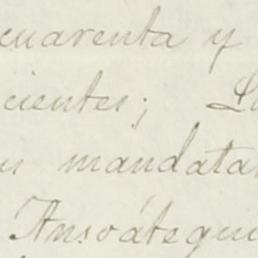 cuarenta y
cientes; 
mandata
Ansoátegui